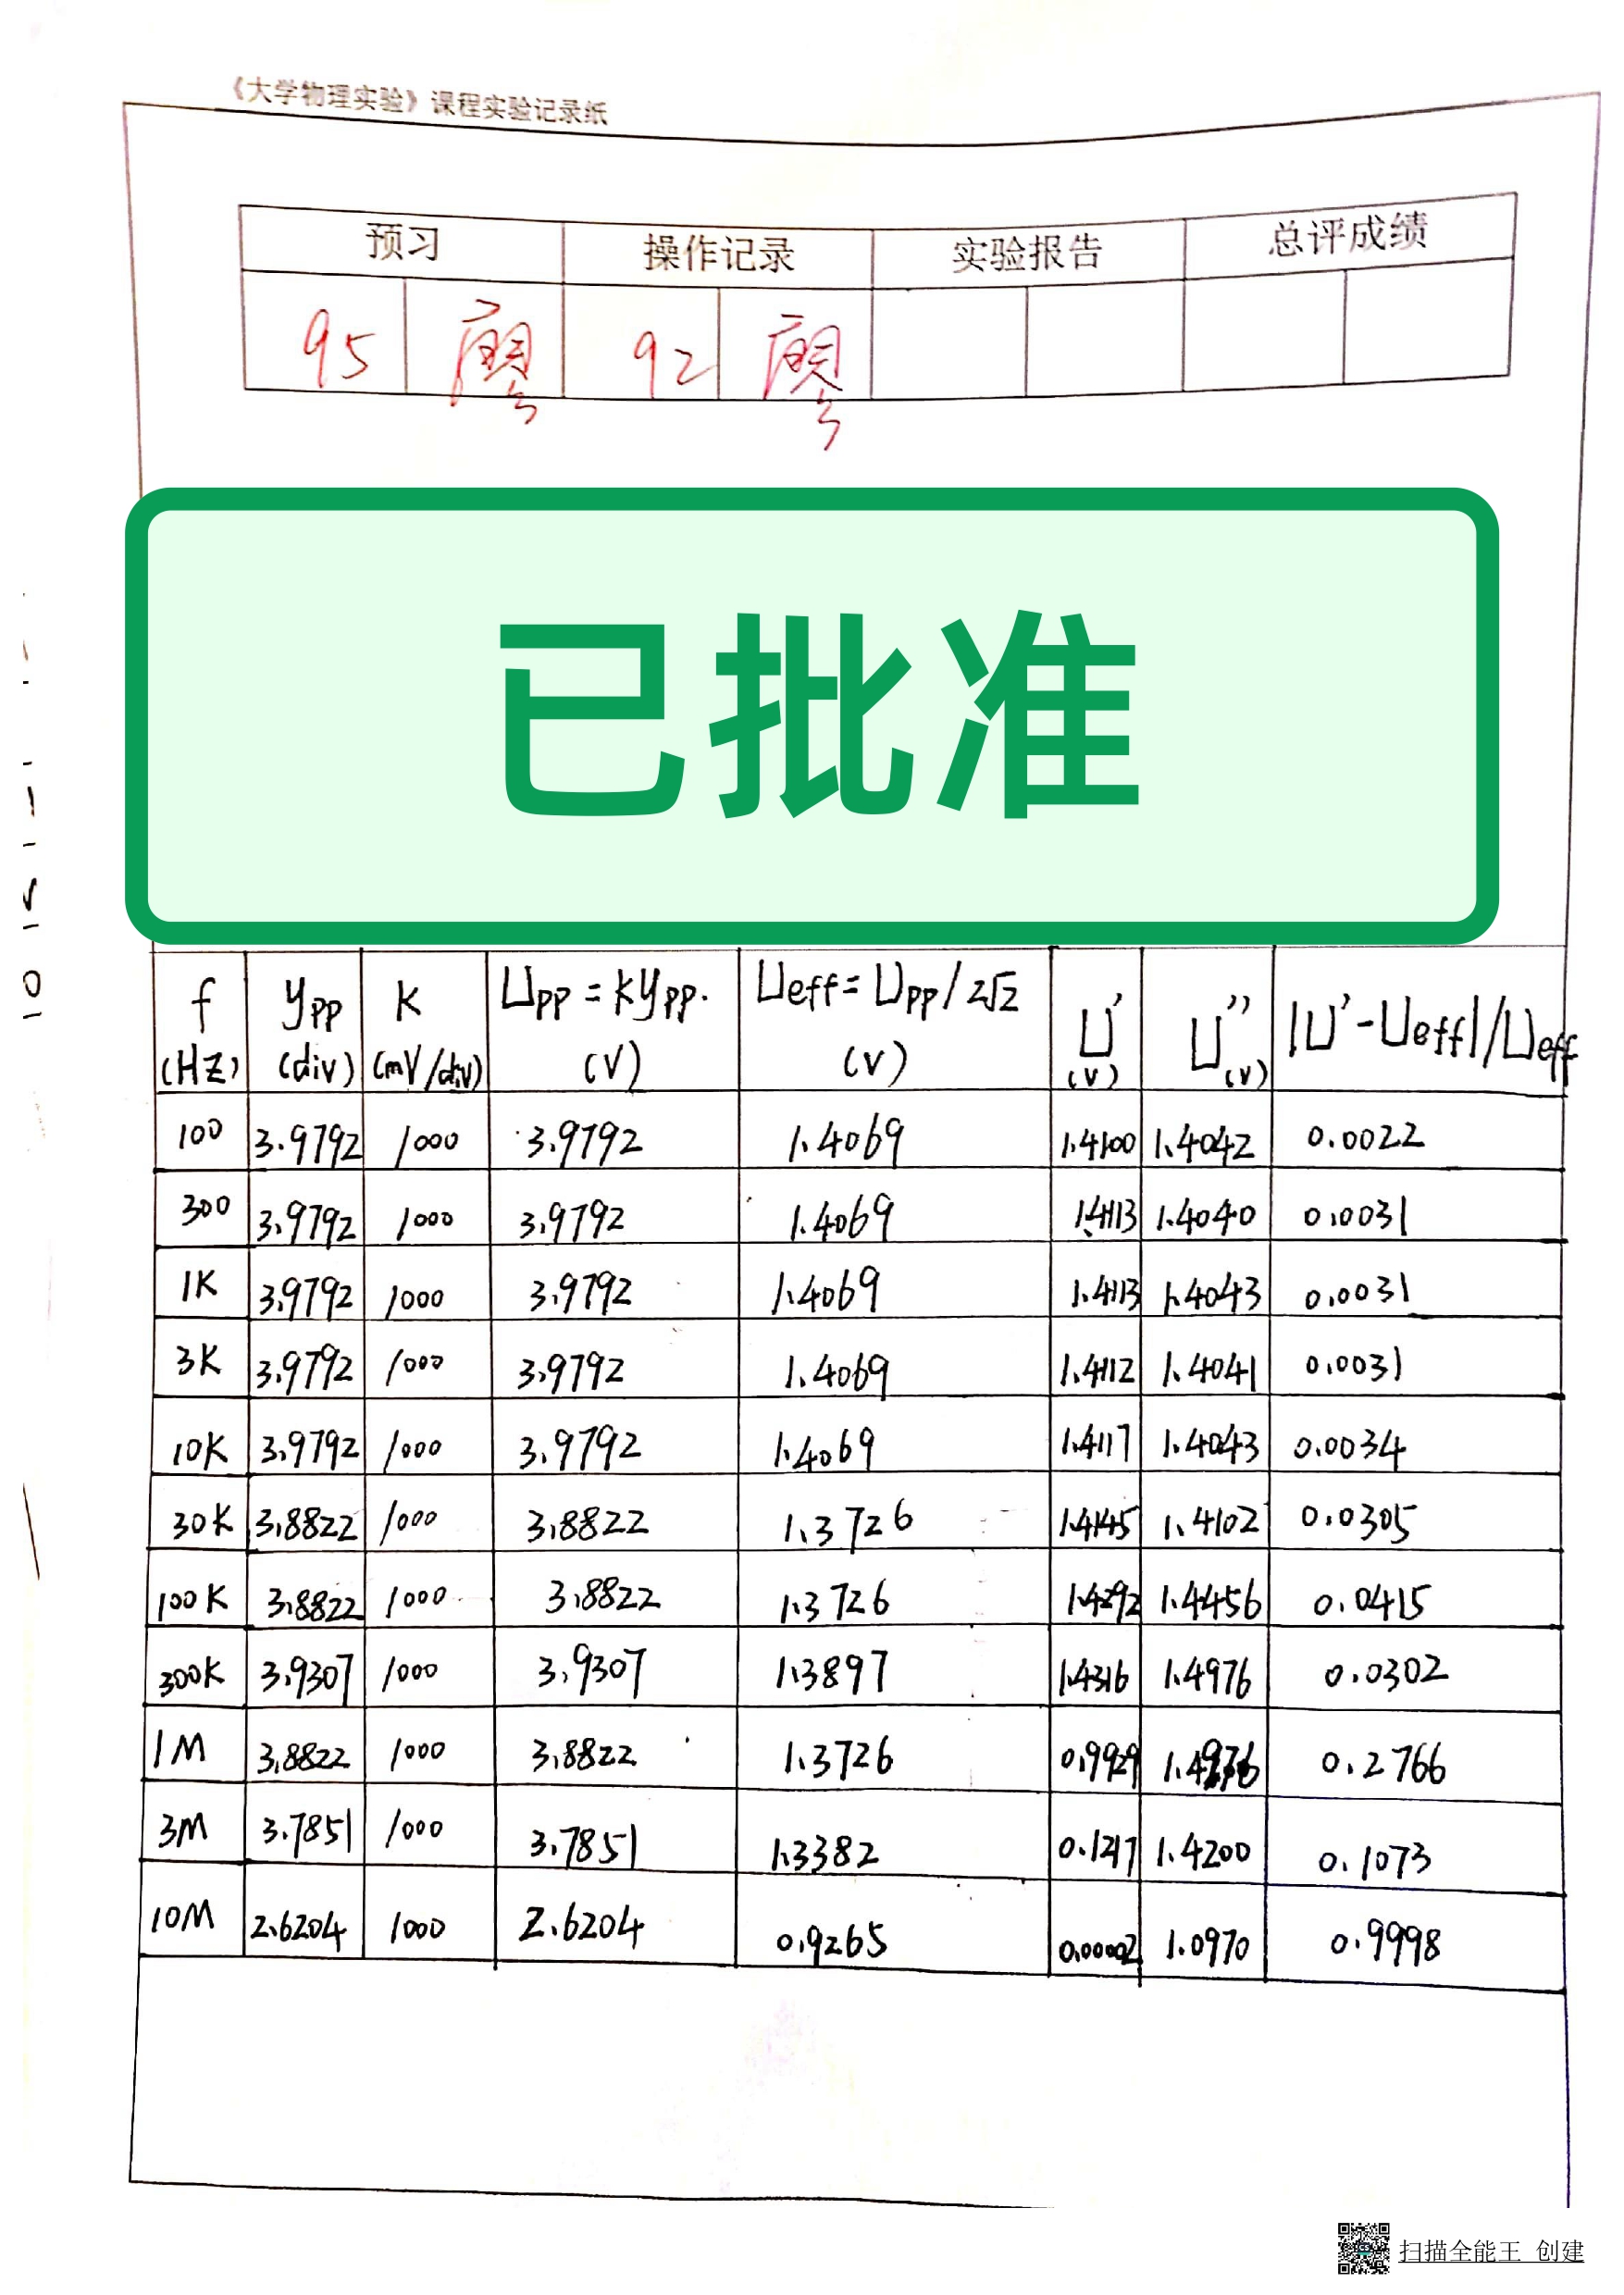 《大学物理实验》课程实验记录纸
预习 操作记录 实验报告 总评成绩
95 廖 92 廖
已批准
f (HZ) ypp (div) K (mV/div) Upp = kypp. (V) Ueff = Upp/2√2 (V) U' (V) U'' (V) |U'-Ueff|/Ueff
100 3.9792 1000 3.9792 1.4069 1.4100 1.4042 0.0022
300 3.9792 1000 3.9792 1.4069 1.4113 1.4040 0.0031
1K 3.9792 1000 3.9792 1.4069 1.4113 1.4043 0.0031
3K 3.9792 1000 3.9792 1.4069 1.4112 1.4041 0.0031
10K 3.9792 1000 3.9792 1.4069 1.4117 1.4043 0.0034
30K 3.8822 1000 3.8822 1.3726 1.4145 1.4102 0.0305
100K 3.8822 1000 3.8822 1.3726 1.4292 1.4456 0.0415
300K 3.9307 1000 3.9307 1.3897 1.4316 1.4976 0.0302
1M 3.8822 1000 3.8822 1.3726 0.9929 0.2766
3M 3.7851 1000 3.7851 1.3382 0.1217 1.4200 0.1073
10M 2.6204 1000 2.6204 0.9265 0.00002 1.0970 0.9998
扫描全能王 创建